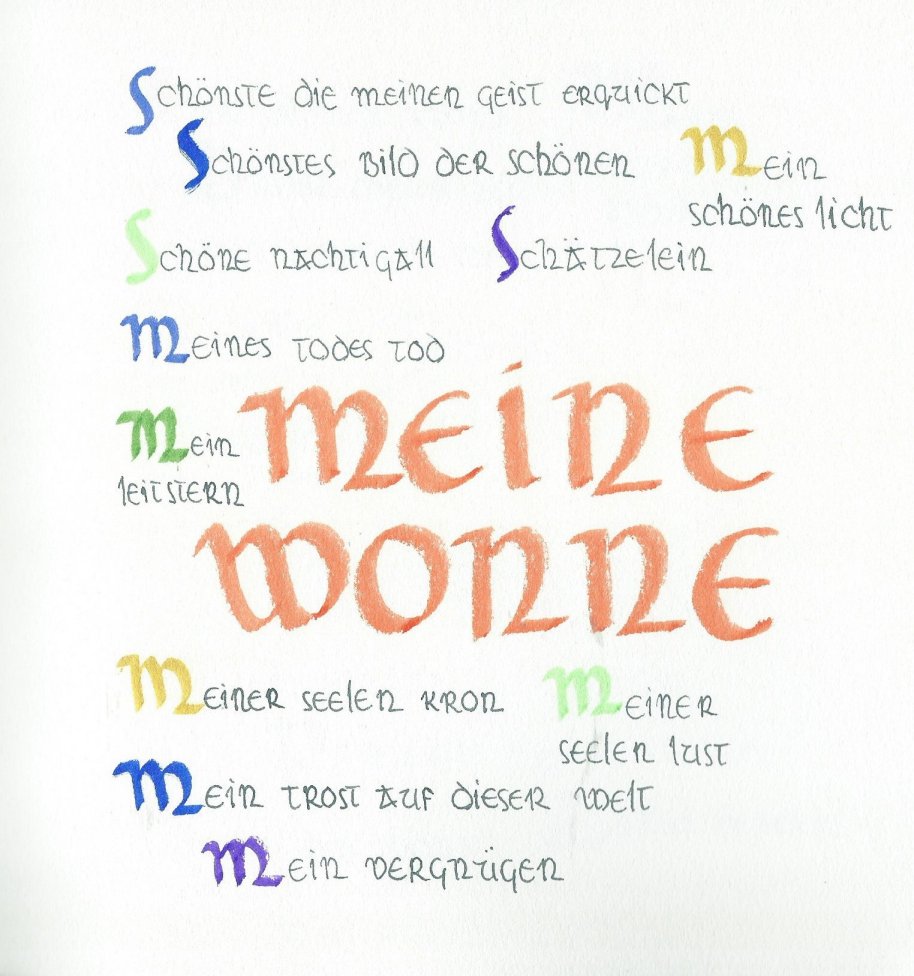 Schönste die meinen geist erquickt
Schönstes Bild der schönen
Mein
schönes licht
Schöne nachtigall
Schätzelein
Meines todes tod
Mein
leitstern
MEINE
WONNE
Meiner seelen kron
Meiner
seelen lust
Mein trost auf dieser welt
Mein vergnügen